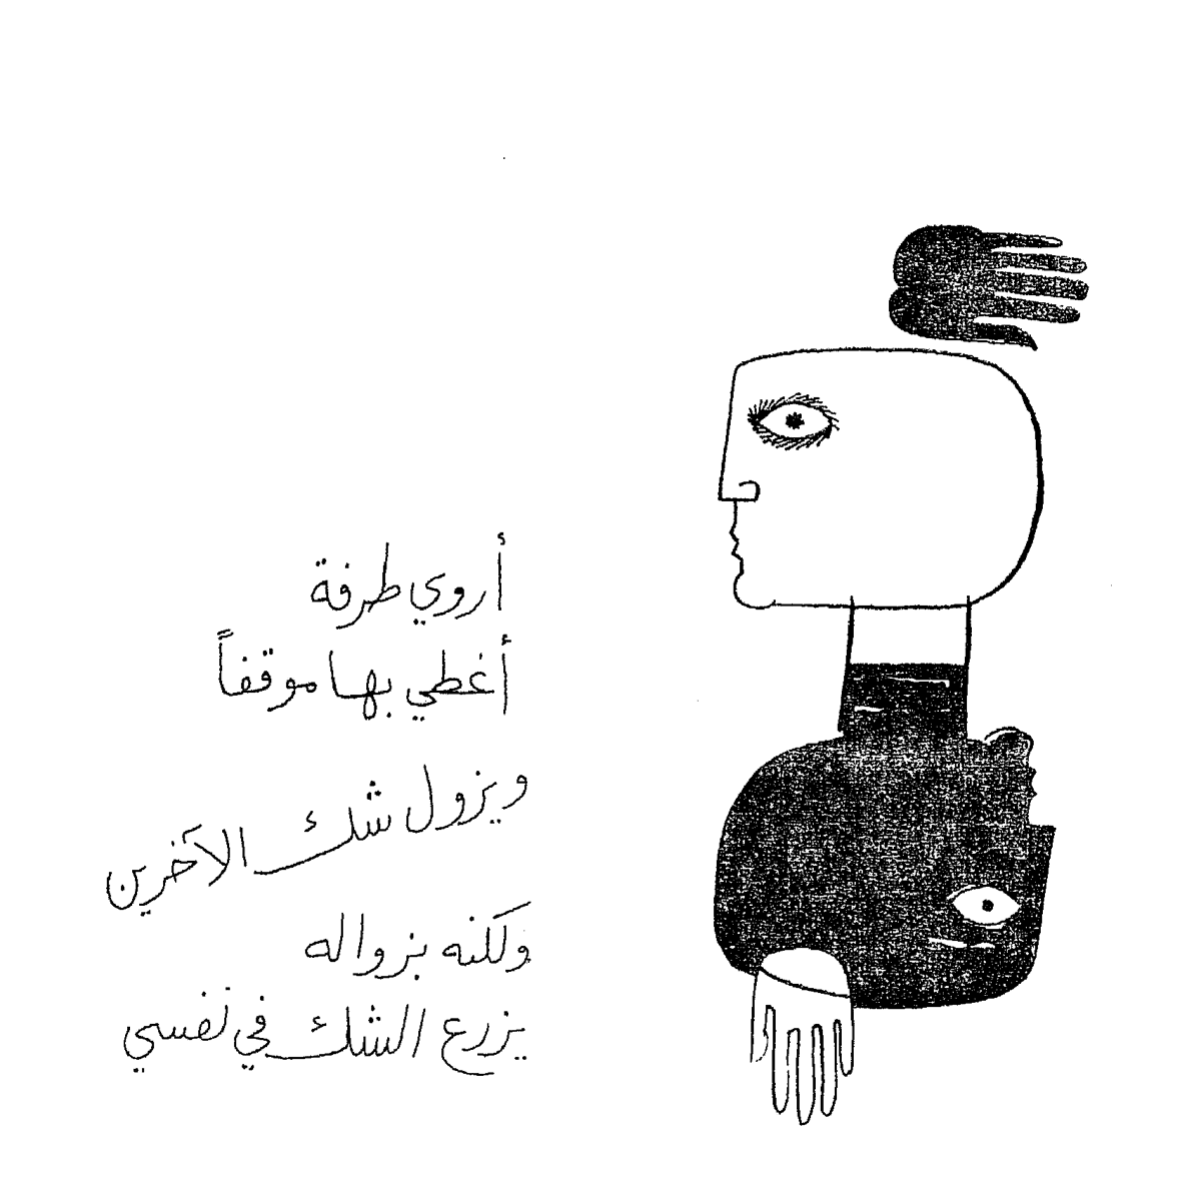 أروي طرفة
أغطي بها موقفاً
ويزول شك الآخرين
ولكنه بزواله
يزرع الشك في نفسي